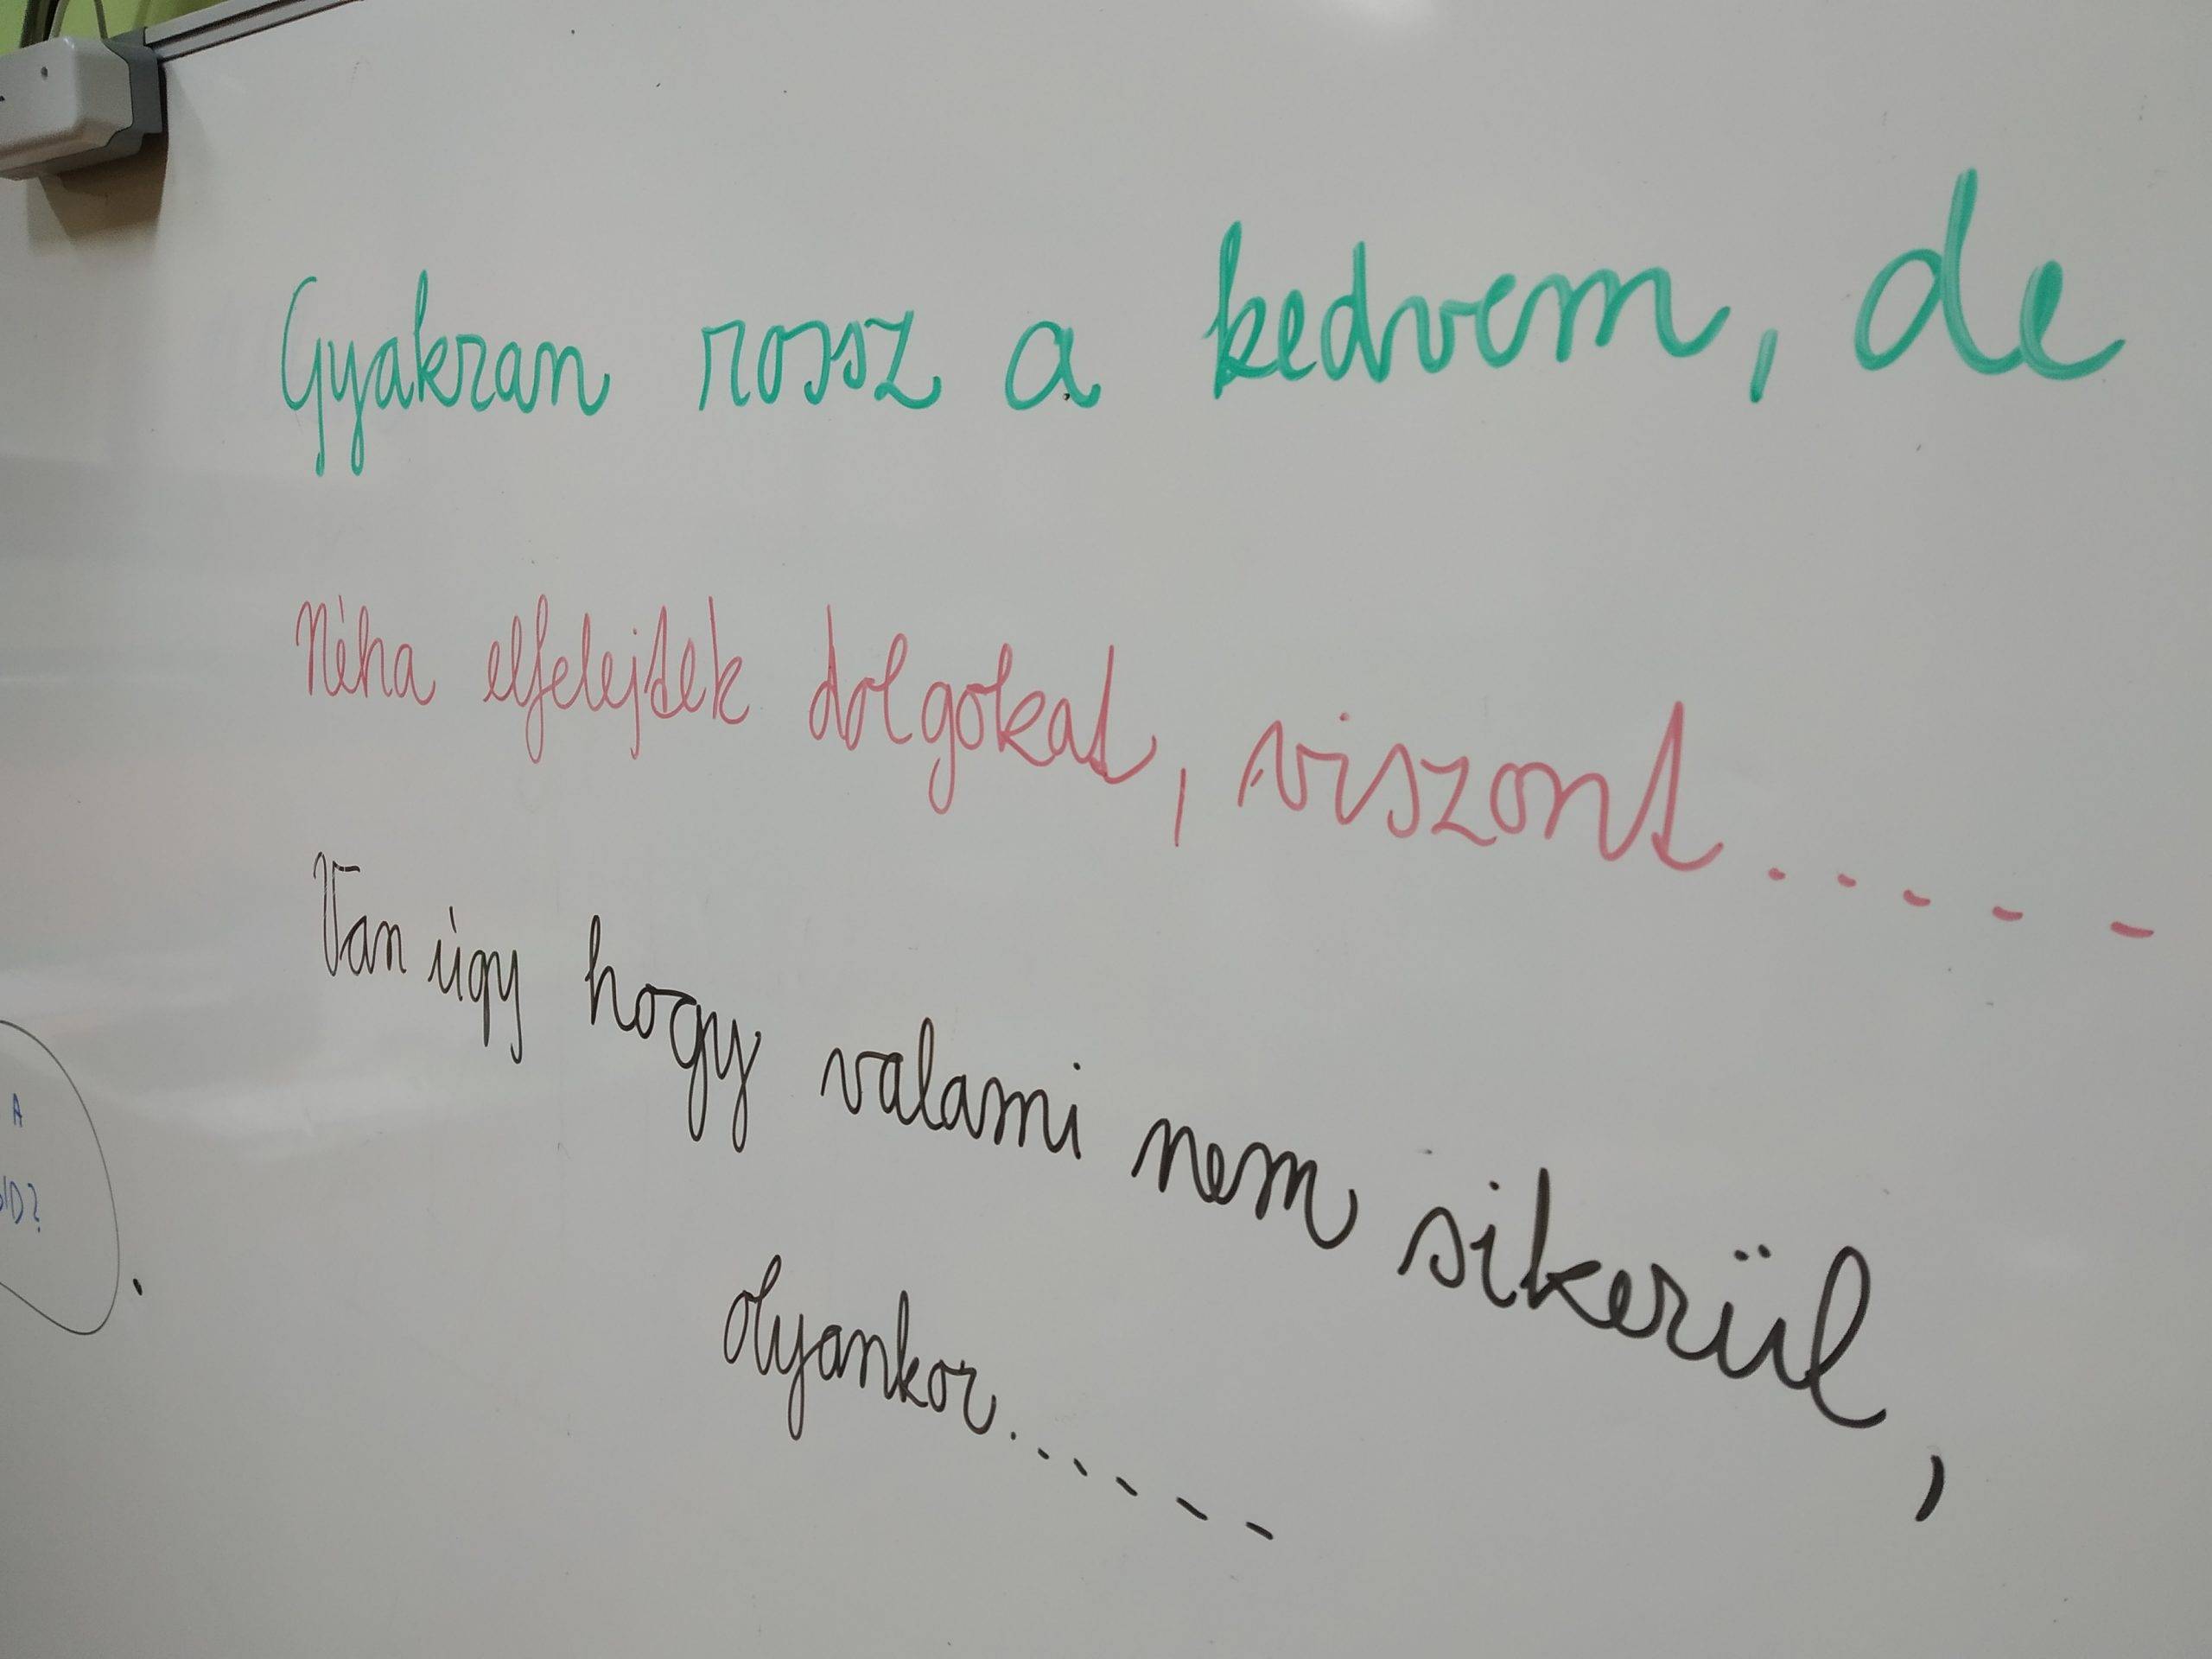 Gyakran rossz a kedvem, de
Néha elfelejtek dolgokat, viszont.....
Van úgy hogy valami nem sikerül,
olyankor......
A